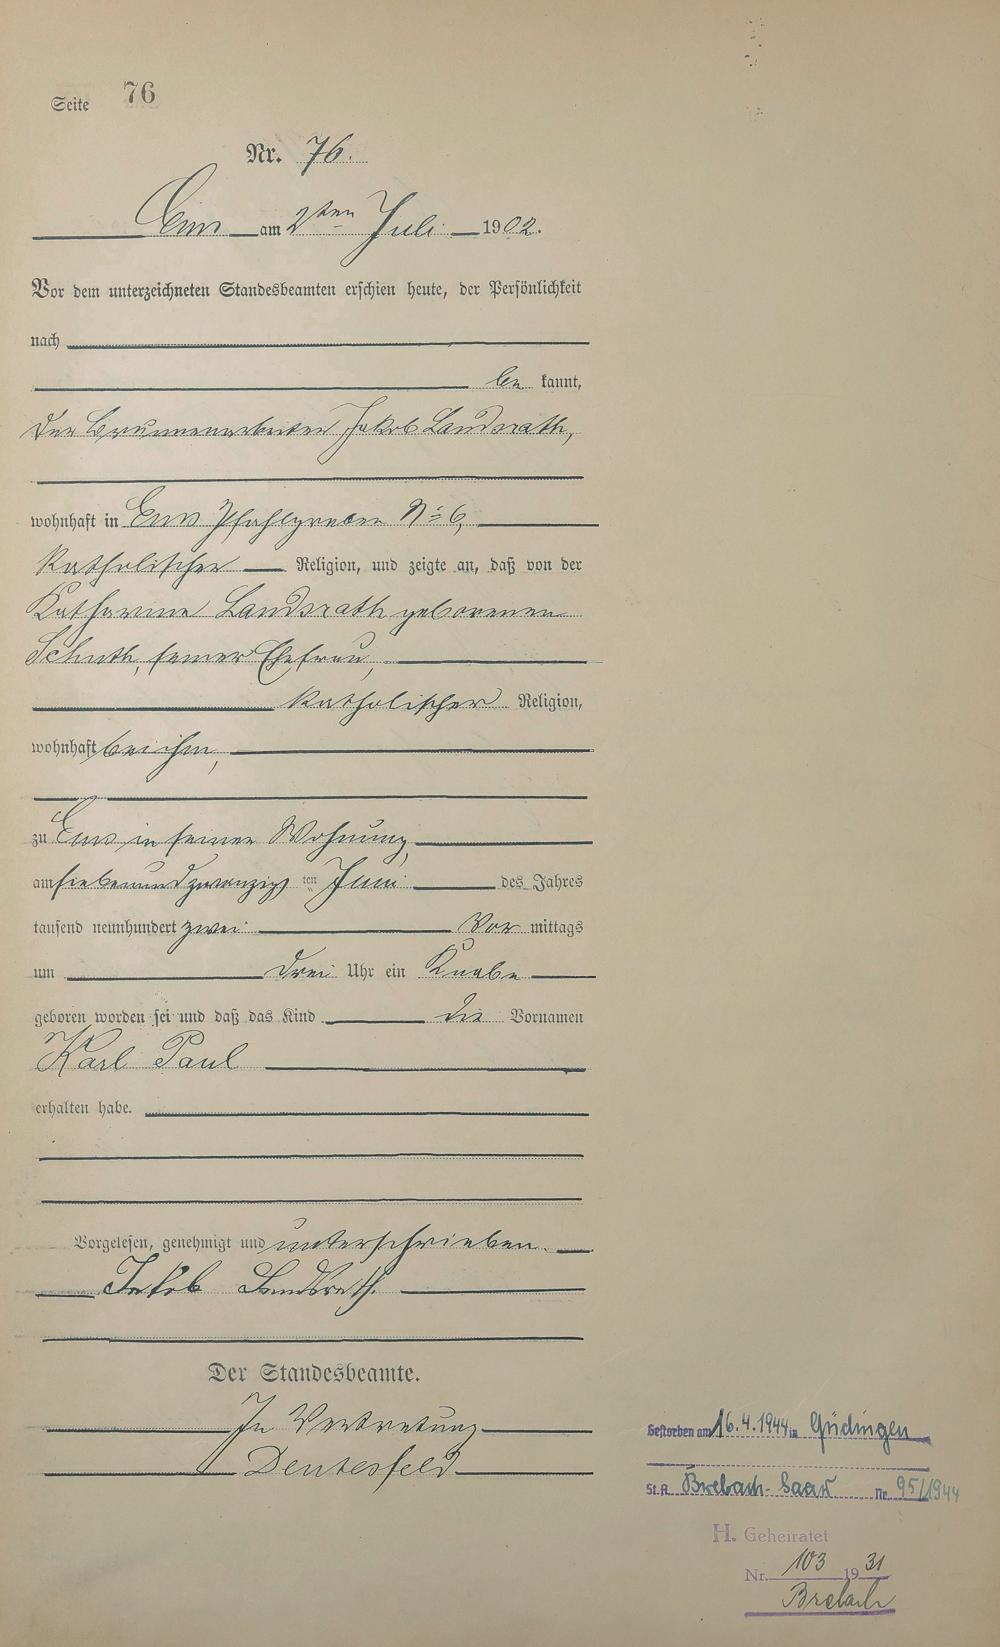 Seite 76
Nr. 76.
Ems am 2ten Juli 1902.
Vor dem unterzeichneten Standesbeamten erschien heute, der Persönlichkeit
nach
be kannt,
der Brunnenarbeiter Jakob Landsrath,
wohnhaft in Ems Pfahlgraben No 6,
katholischer Religion, und zeigte an, daß von der
Katharina Landsrath geborenen
Schuth, seiner Ehefrau,
katholischer Religion,
wohnhaft bei ihm,
zu Ems in seiner Wohnung,
am siebenundzwanzigs ten Juni des Jahres
tausend neunhundert zwei Vor mittags
um drei Uhr ein Knabe
geboren worden sei und daß das Kind die Vornamen
Karl Paul
erhalten habe.
Vorgelesen, genehmigt und unterschrieben.
Jakob Landsrath.
Der Standesbeamte.
In Vertretung
Deutesfeld
Gestorben am 16.4.1944 in Güdingen
St.A. Brebach-Saar Nr. 95/1944
H. Geheiratet
Nr. 103 1931
Brebach